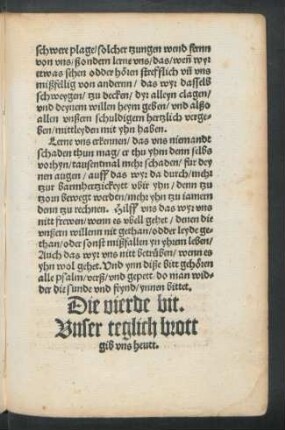 schwere plage/ solcher tzungen wend fernn
von vns/ ßondern lerne vns/ das/ weñ wyr
etwas sehen odder hören strefflich vñ vns
mißfellig von andernn/ das wyr dasselb
schweygen/ tzu decken/ dyr alleyn clagen/
vnd deynem willen heym geben/ vnd alßo
allen vnßern schuldigern hertzlich verge-
ben/ mittleyden mit yhn haben.
Lerne vns erkennen/ das vns niemandt
schaden thun mag/ er thu yhm denn selbs
vorhyn/ tausentmal mehr schaden/ fur dey
nen augen/ auff das wyr da durch/ mehr
tzur barmhertzickeytt vbir yhn/ denn tzu
tzorn bewegt werden/ mehr yhn tzu iamern
denn tzu rechnen. Hilff vns das wyr vns
nitt frewen/ wenn es vbell gehet/ denen die
vnßern willenn nit gethan/ odder leyde ge-
than/ oder sonst mißfallen yn yhrem leben/
Auch das wyr vns nitt betrüben/ wenn es
yhn wol gehet. Vnd ynn disse bitt gehören
alle psalm/ verß/ vnd gepett do man wid-
der die sunde vnd feynd/ ynnen bittet.
Die vierde bit.
Vnser teglich brott
gib vns heutt.